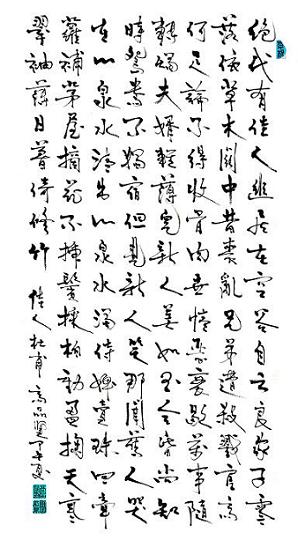 絕代有佳人幽居在空谷自云良家子零
落依草木關中昔喪亂兄弟遭殺戮官高
何足論不得收骨肉世情惡衰歇萬事隨
轉燭夫婿輕薄兒新人美如玉合昏尚知
時鴛鴦不獨宿但見新人笑那聞舊人哭
在山泉水清出山泉水濁侍婢賣珠回牽
蘿補茅屋摘花不插鬢採柏動盈掬天寒
翠袖薄日暮倚修竹 佳人 杜甫